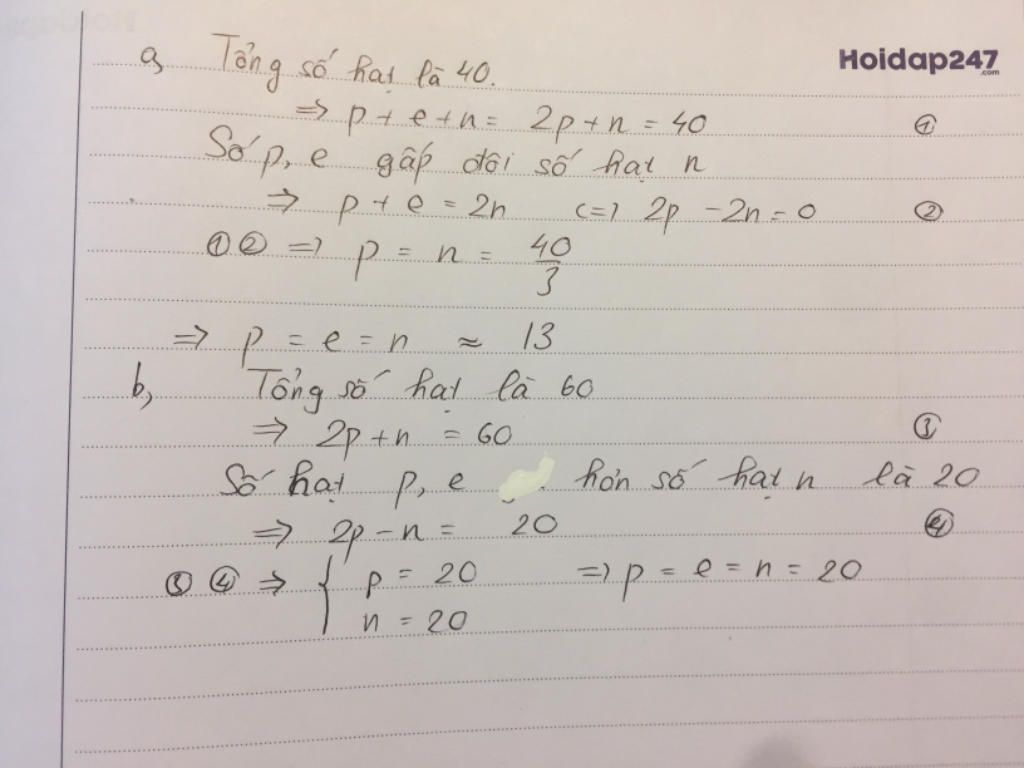 a, Tổng số hạt là 40.
Hoidap247
.com
=> p + e + n = 2p + n = 40 ①
Số p, e gấp đôi số hạt n
=> p + e = 2n <=> 2p - 2n = 0 ②
① ② => p = n = 40/3
=> p = e = n ≈ 13
b, Tổng số hạt là 60
=> 2p + n = 60 ③
Số hạt p, e hơn số hạt n là 20
=> 2p - n = 20 ④
③ ④ => { p = 20 => p = e = n = 20
n = 20